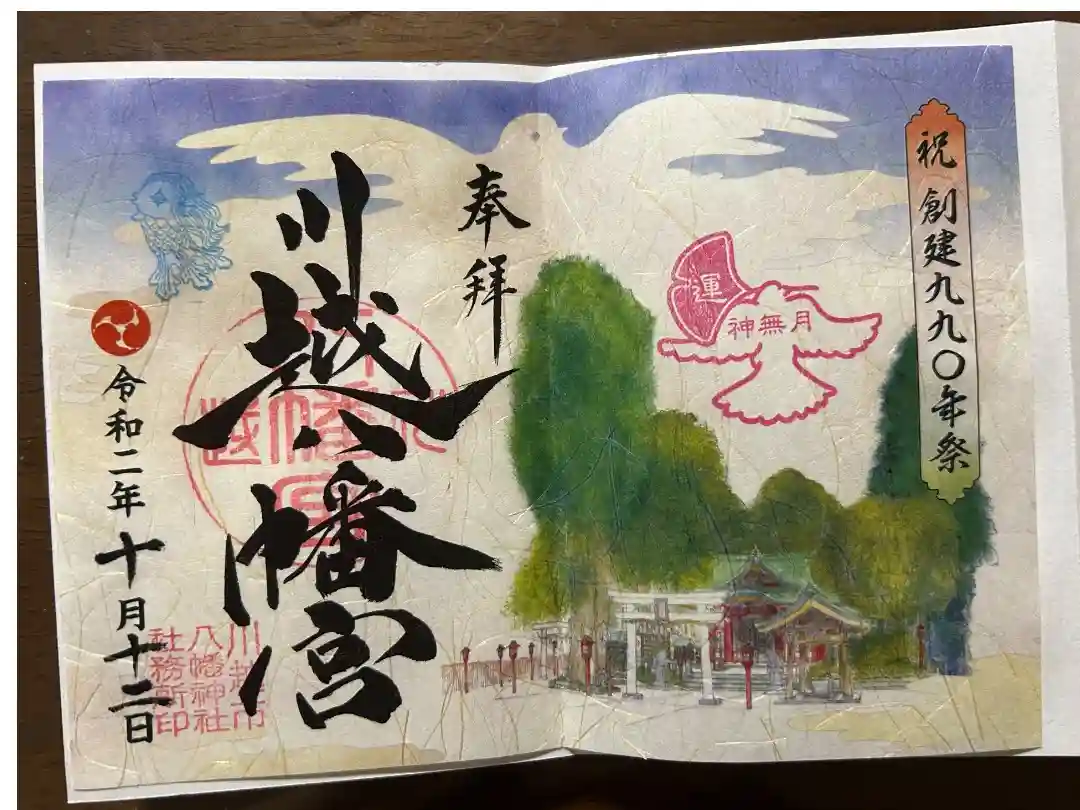 祝 創建九九〇年祭
運
神無月
奉拝
川越八幡宮
川越八幡宮
令和二年十月十二日
川越市
八幡神社
社務所印